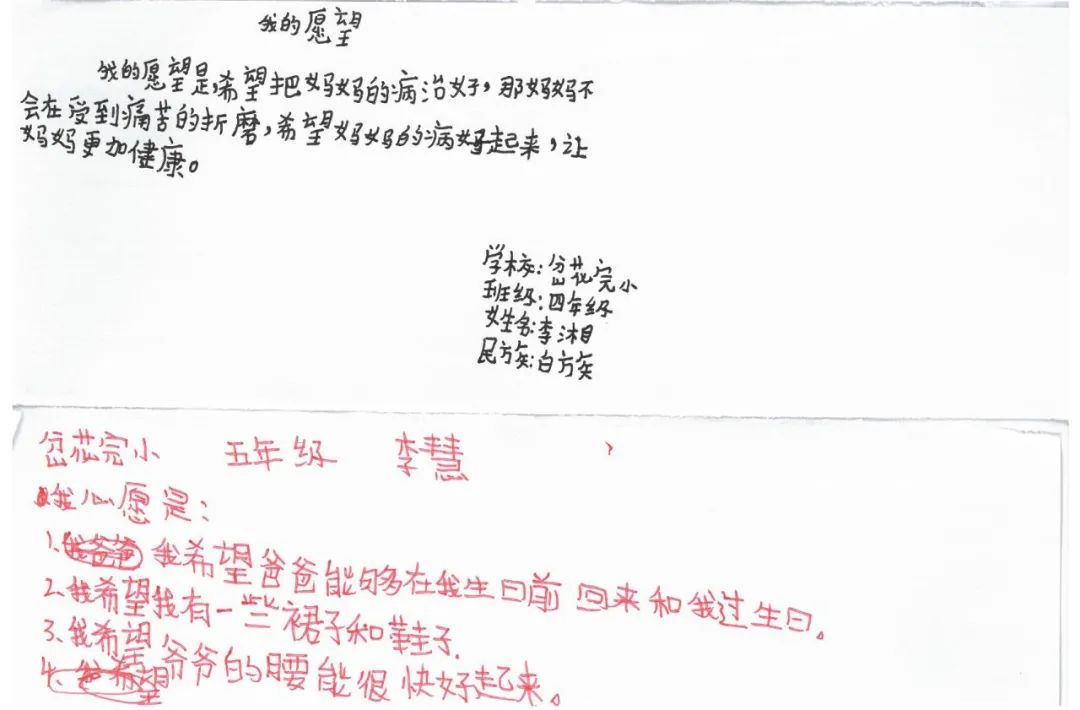 我的愿望
我的愿望是,希望把妈妈的病治好,那妈妈不
会在受到痛苦的折磨,希望妈妈的病好起来,让
妈妈更加健康。
学校:岔花完小
班级:四年级
姓名:李湘
民族:白族
岔花完小 五年级 李慧
我心愿是:
1.我希望爸爸能够在我生日前回来和我过生日。
2.我希望我有一些裙子和鞋子.
3.我希望爷爷的腰能很快好起来。
4.